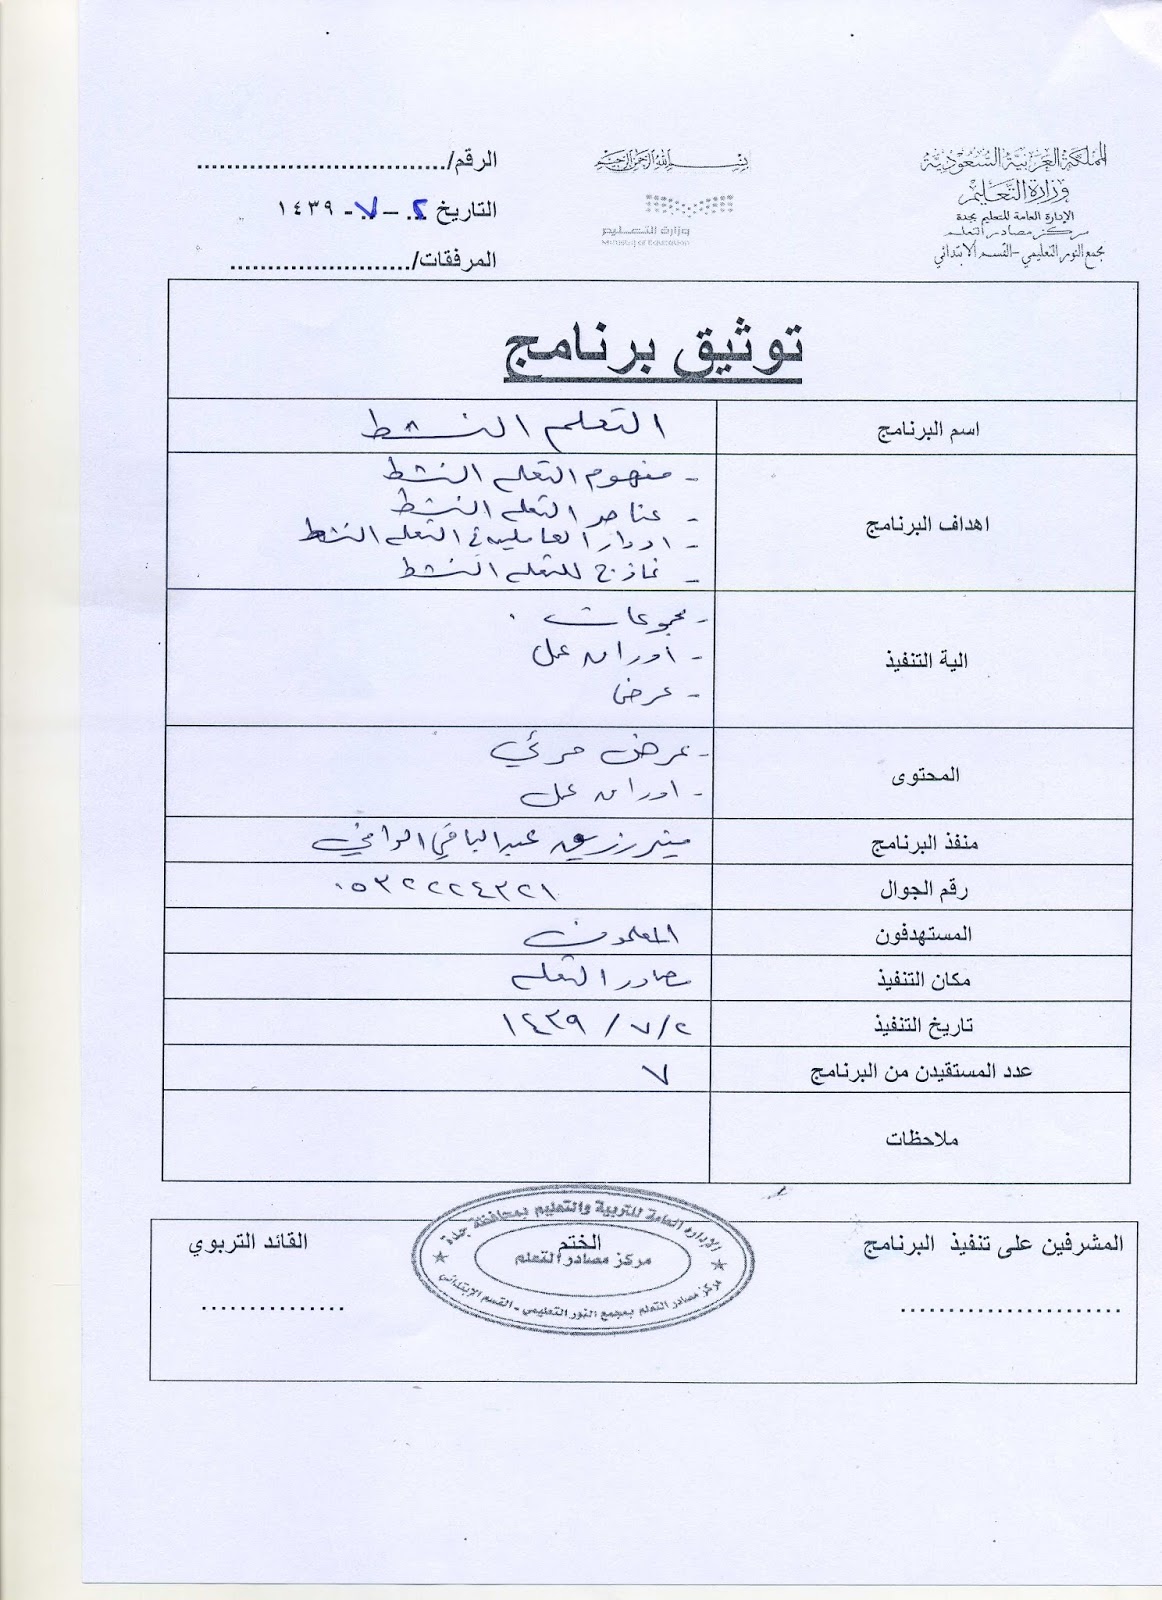 المملكة العربية السعودية
وزارة التعليم
الإدارة العامة للتعليم بجدة
مركز مصادر التعلم
مجمع النور التعليمي - القسم الابتدائي
بسم الله الرحمن الرحيم
وزارة التعليم
Ministry of Education
الرقم/................................
التاريخ ٢ - ٧ - ١٤٣٩
المرفقات/........................
توثيق برنامج
اسم البرنامج التعلم النشط
اهداف البرنامج
- مفهوم التعلم النشط
- عناصر التعلم النشط
- ادوار العاملين في التعلم النشط
- نماذج للتعلم النشط
الية التنفيذ
- مجموعات .
- أوراق عمل
- عرض
المحتوى
- عرض مرئي
- اوراق عمل
منفذ البرنامج عبدالباقي
رقم الجوال ٠٥٣٢٢٢٤٣٢١
المستهدفون المعلمون
مكان التنفيذ مصادر التعلم
تاريخ التنفيذ ٢ / ٧ / ١٤٣٩
عدد المستقيدن من البرنامج ٧
ملاحظات
المشرفين على تنفيذ البرنامج
......................
الختم
القائد التربوي
...............
الإدارة العامة للتربية والتعليم بمحافظة جدة
مركز مصادر التعلم
مركز مصادر التعلم بمجمع النور التعليمي - القسم الإبتدائي